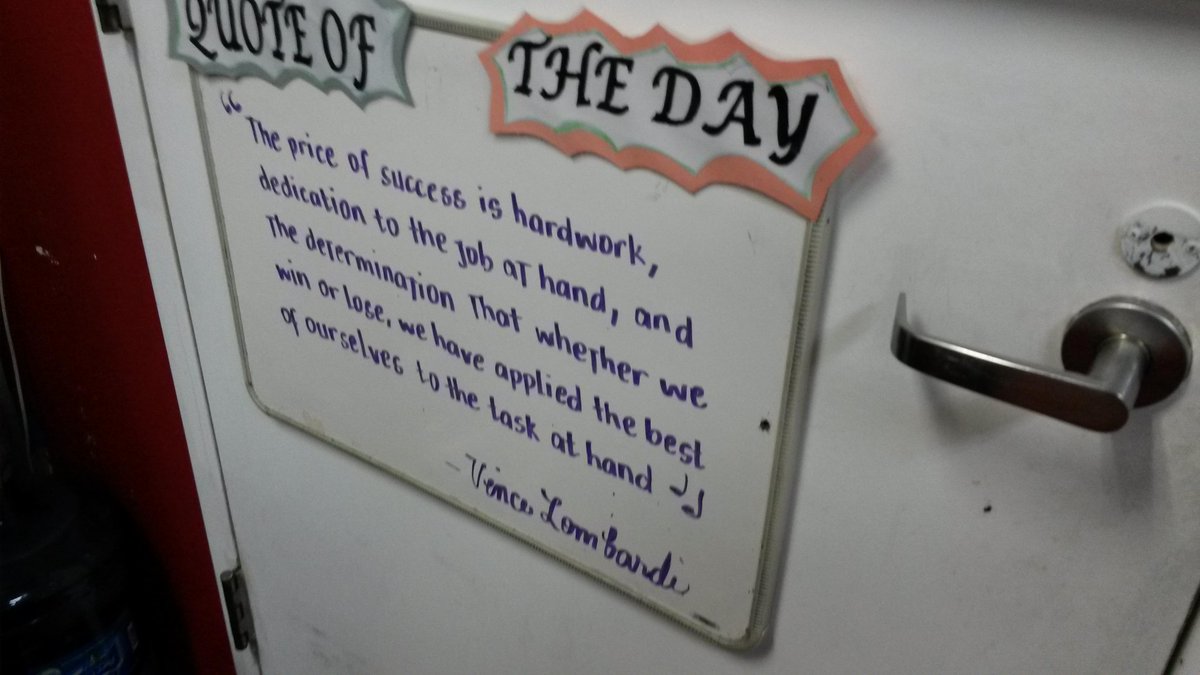 QUOTE OF
THE DAY
“The price of success is hardwork,
dedication to the job at hand, and
The determination That whether we
win or lose, we have applied the best
of ourselves to the task at hand”
- Vince Lombardi